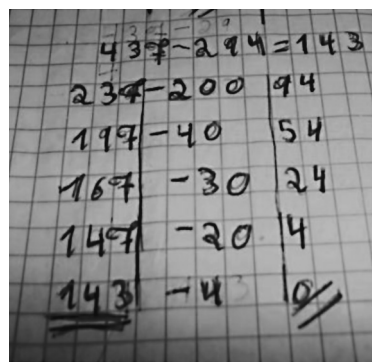 437-294=143
237 -200 94
197 -40 54
167 -30 24
147 -20 4
143 -4 0